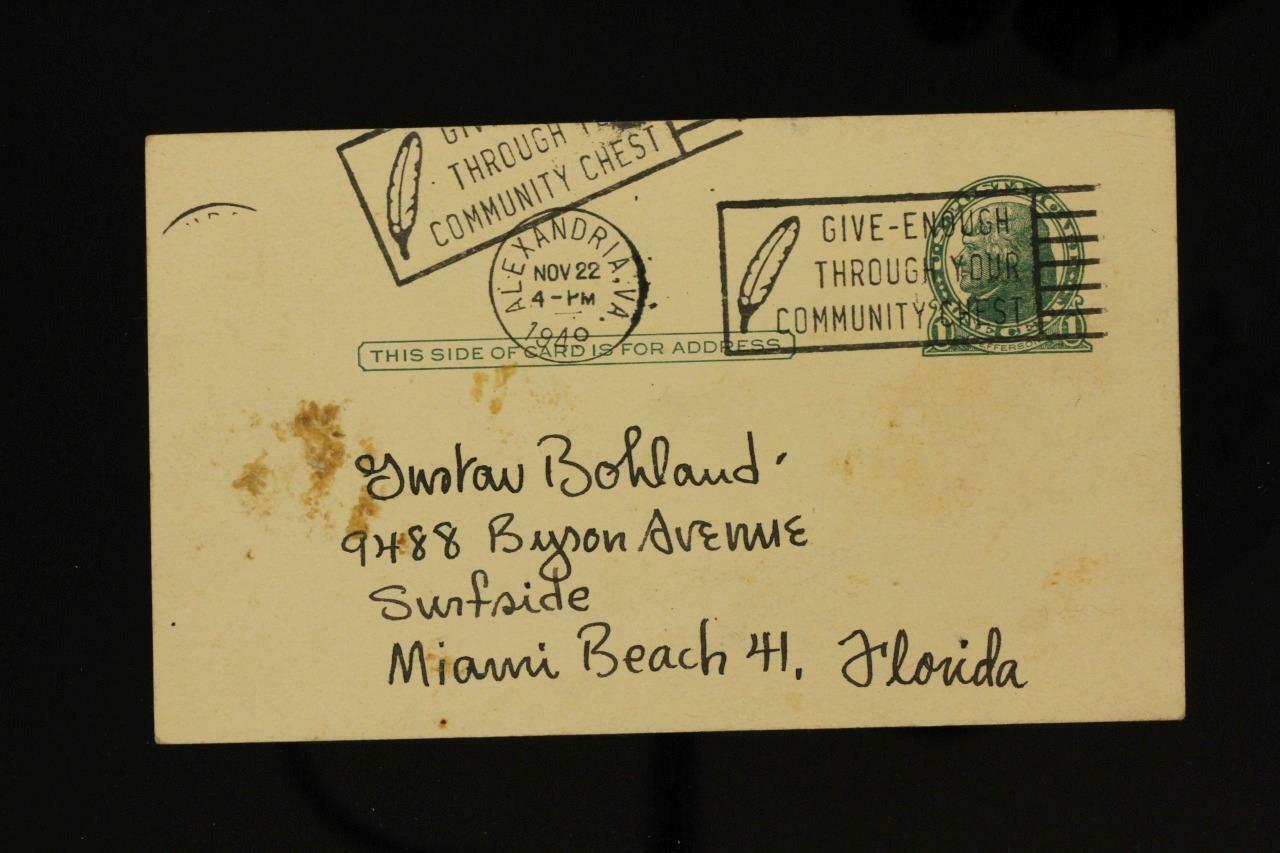 THROUGH
COMMUNITY CHEST
ALEXANDRIA, VA.
NOV 22
4-PM
1949
GIVE-ENOUGH
THROUGH YOUR
COMMUNITY CHEST
1 JEFFERSON 1
THIS SIDE OF CARD IS FOR ADDRESS
Gustav Bohland
9488 Byson Avenue
Surfside
Miami Beach 41, Florida